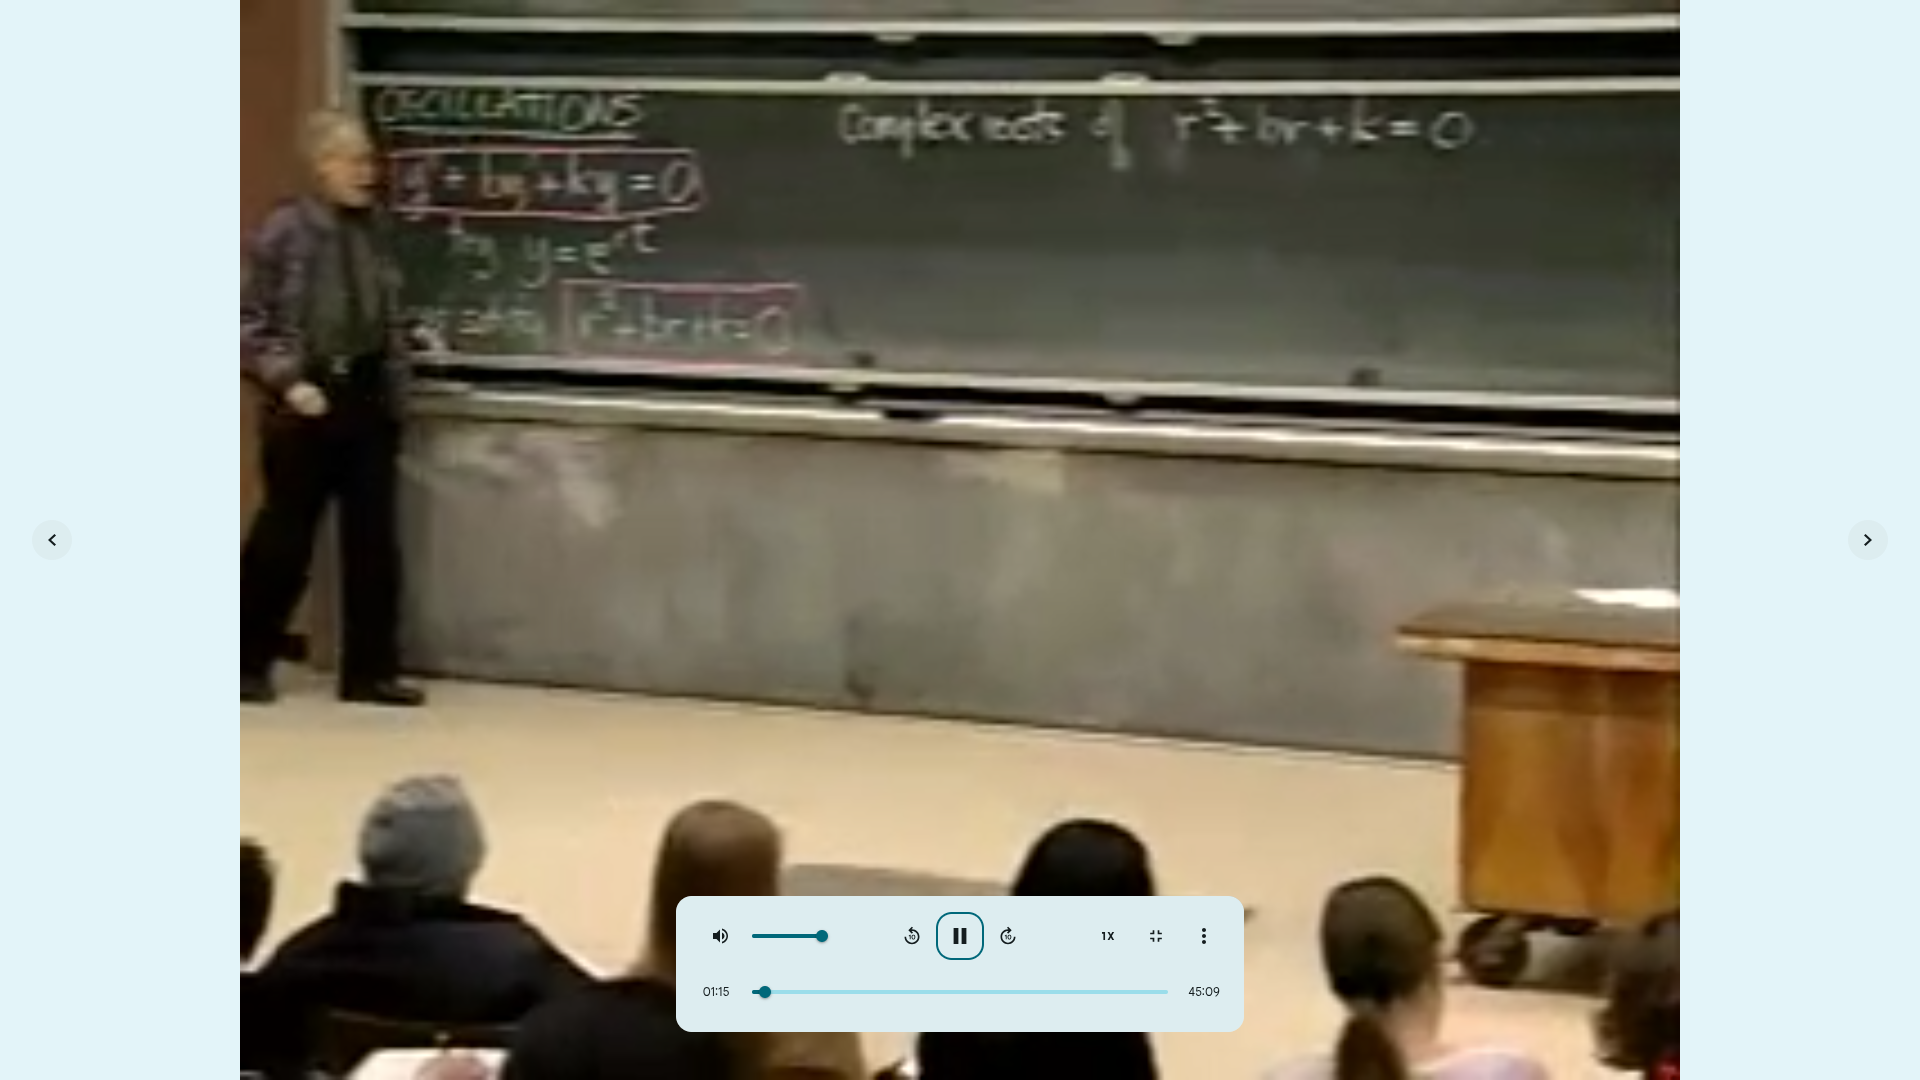 OSCILLATIONS
y″ + by′ + ky = 0
try y = e^rt
r² + br + k = 0
Complex roots of r² + br + k = 0
1X
01:15
45:09